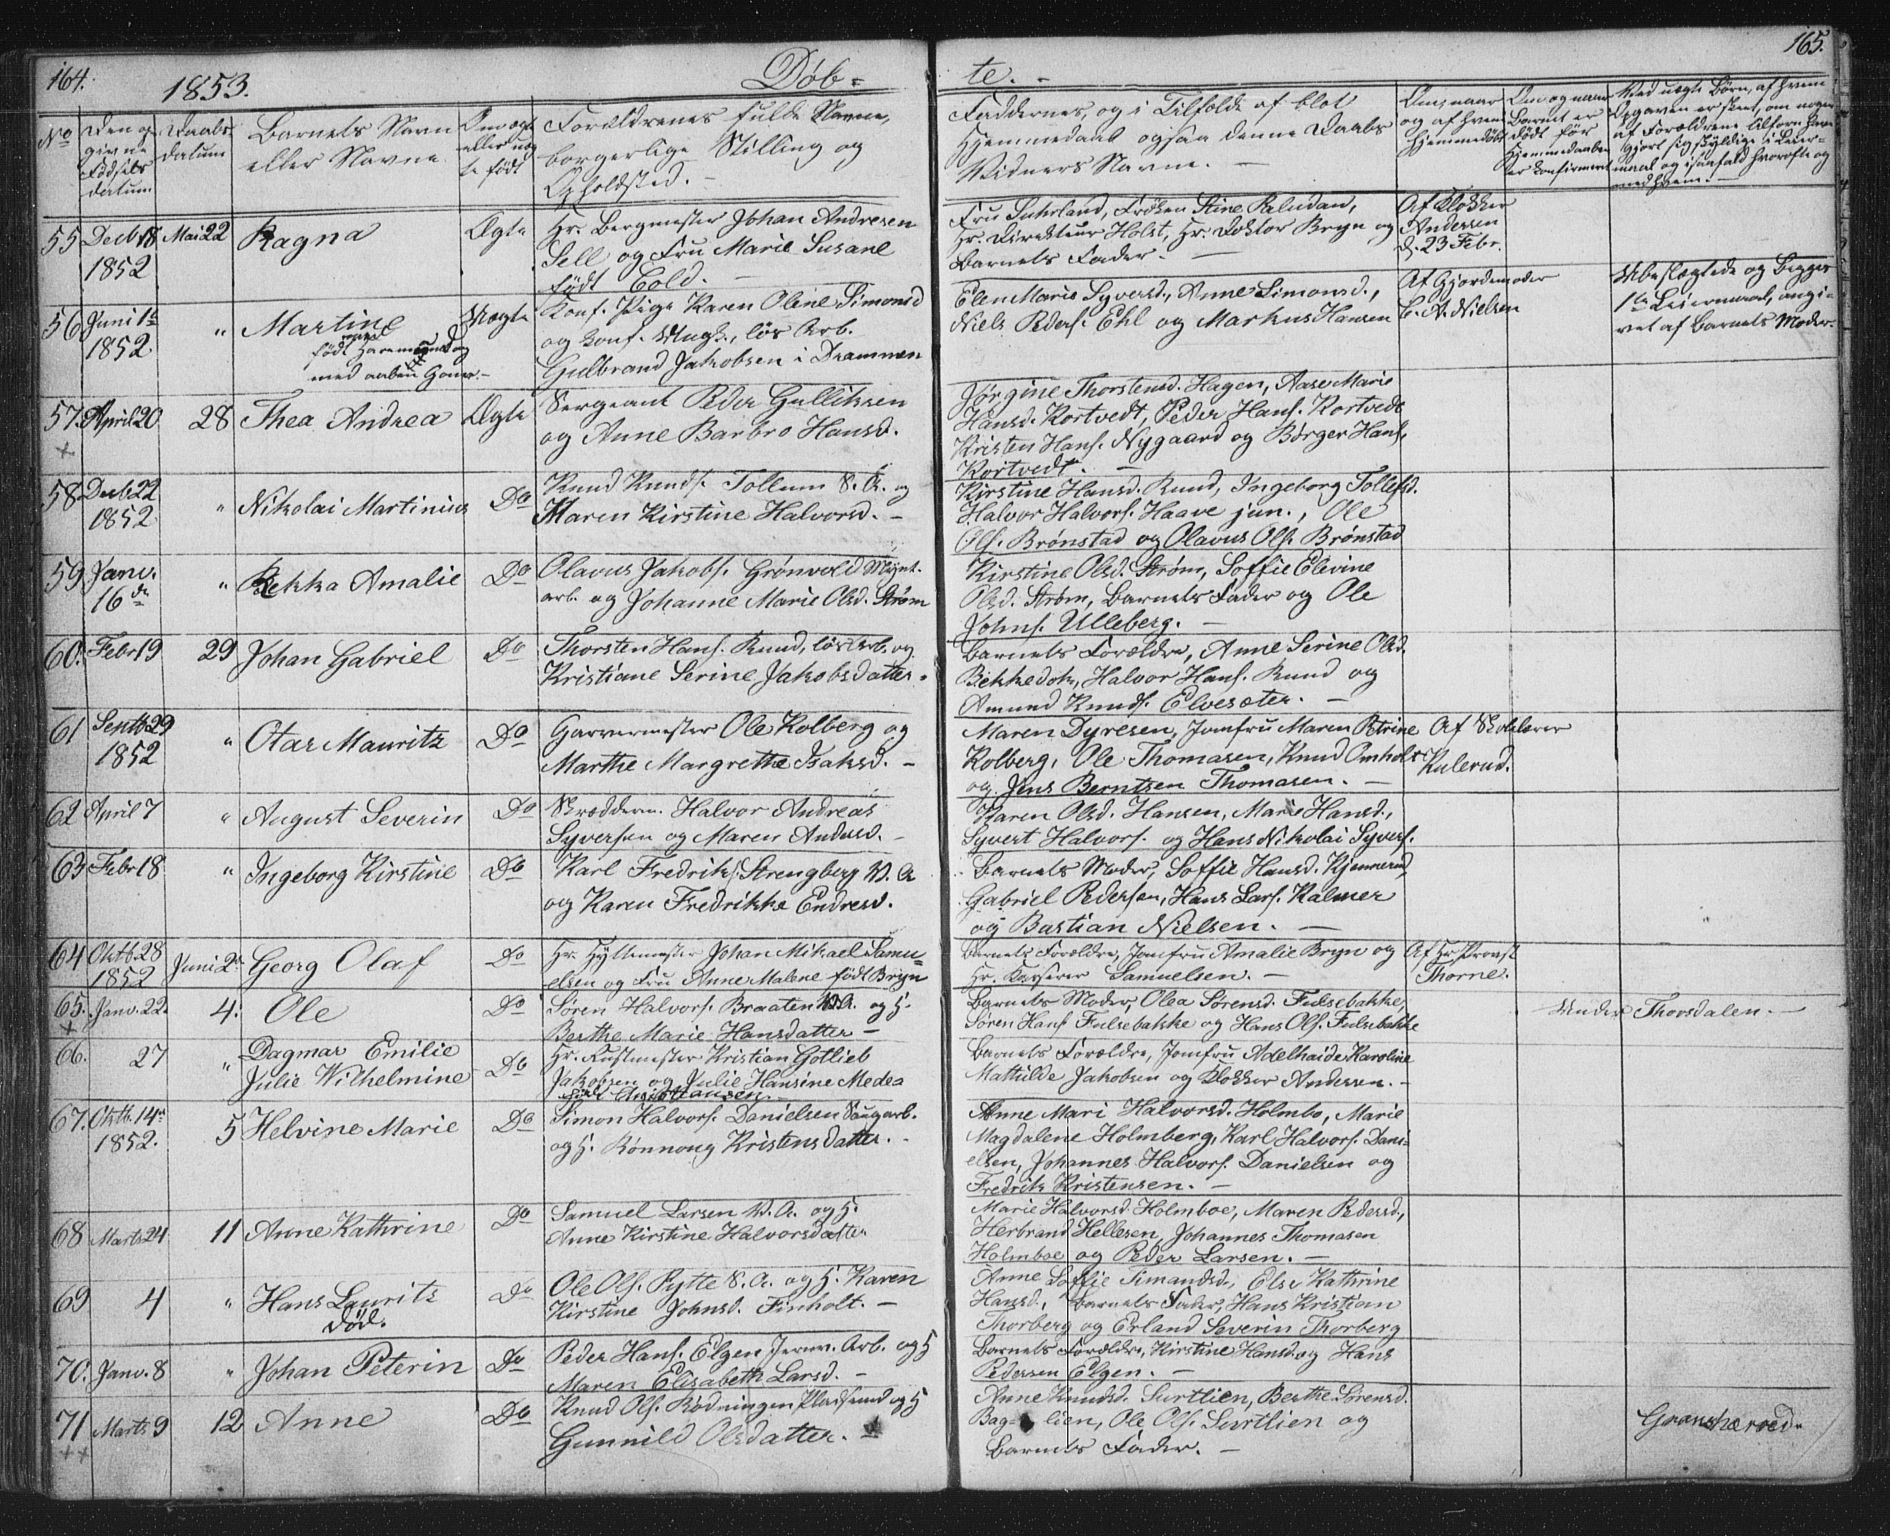 164.
1853.
Døb-
No
Den op
givne
Fødsels
datum
Daabs
datum
Barnets Navn
eller Navne
Om ægte
eller uæg
te født
Forældrenes fulde Navne,
borgerlige Stilling og
Opholdsted. -
55 Decb 18 Mai 22 Ragna Ægte Hr. Bergmester Johan Andresen
1852 Sell og Fru Marie Susane
født Cold. -
56 Juni 1te " Martine Uægte Konf. Pige Karen Oline Simonsd
1852 født
og konf. Ungk., løs Arb.
med aaben Gane. - Gulbrand Jakobsen i Drammen
57 April 20 28 Thea Andrea Ægte Sergeant Peder Gulliksen
og Anne Barbro Hansd.
58 Decb 22 " Nikolai Martinius Do Knud Knuds. Tollum S. A. og
1852 Maren Kirstine Halvorsd. -
59 Janv. " Rekka Amalie Do Olavus Jakobs. Grønvold Mynt.
16de arb. og Johanne Marie Olsd. Strøm
60. Febr 19 29 Johan Gabriel Do Thorsten Hans. Rund, løs Arb. og
Kristiane Serine Jakobsdatter.
61 Septb 29 " Otar Mauritz Do Garvermester Ole Kolberg og
1852 Marthe Margrethe Isaksd. -
62 April 7 " August Severin Do Skrædderm. Halvor Andreas
Syversen og Maren Andersd. -
63 Febr 18 " Ingeborg Kirstine Do Karl Fredriks. Strengberg V. A
og Karen Fredrikke Endresd.
64 Oktb. 28 Juni 2. Georg Olaf Do Hr. Hyttemester Johan Mikael Samu-
1852 elsen og Fru Anne Malene født Bryn
65. Janv. 22 4. Ole Do Søren Halvors. Braaten V.A. og H.
Berthe Marie Hansdatter -
66. 27 " Dagmar Emilie
Julie Wilhelmine Do Hr. Rustmester Kristian Gotlieb
Jakobsen og Julie Hansine Medea
67. Oktb. 14de 5 Helvine Marie Do Simon Halvors. Danielsen Saugarb.
1852. og H. Rønnoug Kristensdatter. -
68 Marts 24 11 Anne Kathrine Do Samuel Larsen V. A. og H.
Anne Kirstine Halvorsdatter
69 4 " Hans Laurits Do Ole Ols. Pytte S. A. og H. Karen
død. Kirstine Johnsd. Finholt. -
70. Janv. 8 " Johan Peterin Do Peder Hans. Elgen Jernv. Arb. og H
Maren Elisabeth Larsd. -
71 Marts 9 12 Anne Do Knud Ols. Rødningen Pladsmd og H
Gunnild Olsdatter. -
165.
te. -
Faddernes, og i Tilfælde af blot
Hjemmedaab ogsaa denne Daabs
Vidners Navne. -
Om, naar
og af hvem
hjemmedøbt
Om og naar
Barnet er
dødt før
Hjemmedaaben
er konfirmeret
Ved uægte Børn, af hvem
Opgaven er skeet, om nogen
af Forældrene tilforn have
gjort sig skyldige i Leier-
maal og isaafald hvorofte og
med hvem. -
Fru Suhrland, Frøken Stine Paludan,
Hr. Direkteur Holst, Hr. Doktor Bryn og
Barnets Fader. -
Af Klokker
Andersen
d. 23 Febr.
Elen Marie Syversd., Anne Simonsd.,
Niels Peders. Ehl og Markus Hansen
Af Gjordemoder
C. A. Nielsen
Ubeslægtede og Begges
1te Leiermaal, angi-
vet af Barnets Moder.
Jørgine Thorstensd. Hagen, Aase Marie
Hansd. Kortvedt, Peder Hans. Kortvedt
Kristen Hans. Nygaard og Børger Hans.
Kortvedt. -
Kirstine Hansd. Rund, Ingeborg Tollefsd.
Halvor Halvors. Haave jun., Ole
Ols. Brønstad og Olavus Ols. Brønstad
Kirstine Olsd. Strøm, Soffie Elevine
Olsd. Strøm, Barnets Fader og Ole
Johns. Ulleberg. -
Barnets Forældre, Anne Serine Olsd.
Bekkedok, Halvor Hans. Rund og
Amund Knuds. Elvesæter. -
Maren Dyresen, Jomfru Maren Petrine
Kolberg, Ole Thomasen, Knud Omholt
og Jens Berntsen Thomasen. -
Af Skolelærer
Kulerud.
Karen Olsd. Hansen, Marie Hansd.,
Syvert Halvors. og Hans Nikolai Syvers.
Barnets Moder, Soffie Hansd. Kjennerud,
Gabriel Pedersen, Hans Lars. Kalmer
og Bastian Nielsen. -
Barnets Forældre, Jomfru Amalie Bryn og
Hr. Kasserer Samuelsen. -
Af Hr. Provst
Thorne.
Barnets Moder, Olea Sørensd. Fulsebakke,
Søren Hans Fulsebakke og Hans Ols. Fulsebakke
Under Thorsdalen. -
Barnets Forældre, Jomfru Adelhaide Karoline
Mathilde Jakobsen og Klokker Andersen. -
Anne Mari Halvorsd. Holmbo, Marie
Magdalene Holmberg, Karl Halvors. Dani-
elsen, Johannes Halvors. Danielsen og
Fredrik Kristensen. -
Marie Halvorsd. Holmboe, Maren Pedersd.,
Herbrand Hellesen, Johannes Thomasen
Holmboe og Peder Larsen. -
Anne Soffie Simandsd., Else Kathrine
Hansd., Barnets Fader, Hans Kristian
Thorberg og Erland Severin Thorberg
Barnets Forældre, Kirstine Hansd. og Hans
Pedersen Elgen. -
Anne Knudsd. Surtlien, Berthe Sørensd.
Bag- lien, Ole Ols. Surtlien og
Barnets Fader. -
Gransherred.